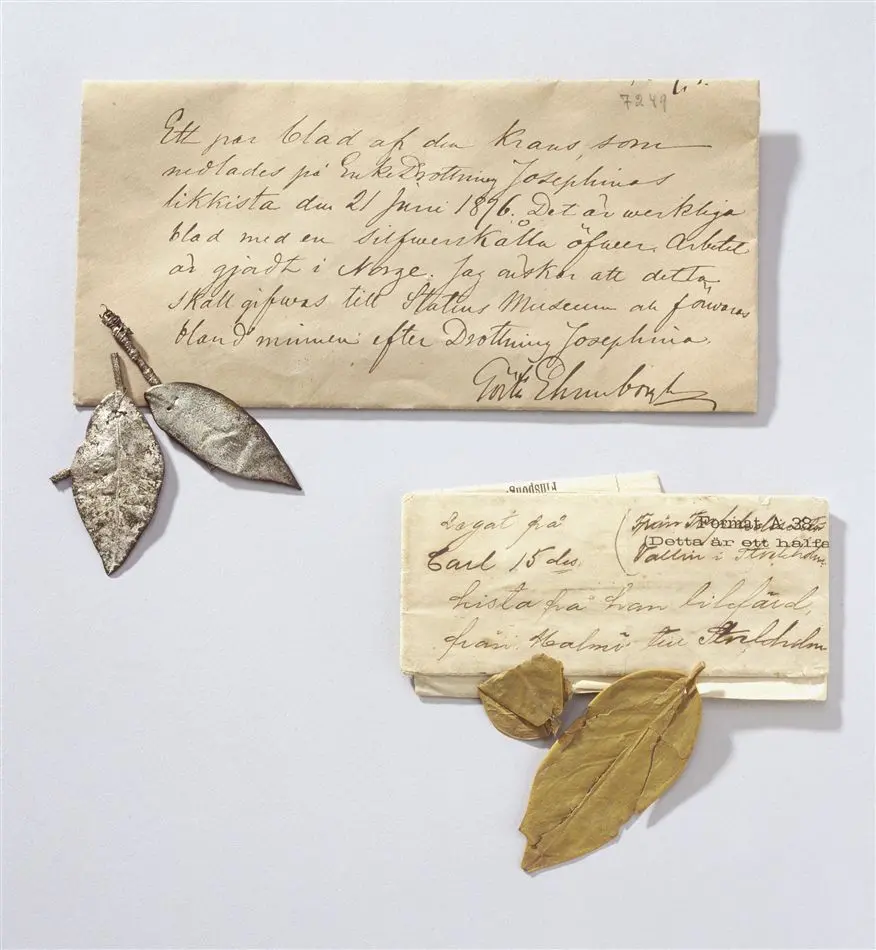 7249
Ett par blad af den Krans, som
nedlades på EnkeDrottning Josephinas
likkista den 21 Juni 1876. Det är werkliga
blad med en silfwerskålla öfwer. Arbetet
är gjordt i Norge. Jag önskar att detta
skall gifwas till Statens Museum att förwaras
bland minnen efter Drottning Josephina.
Legat på
Format A 38.
(Detta är ett halfa
Carl 15 des
kista på han likfärd,
från Malmö till Stockholm